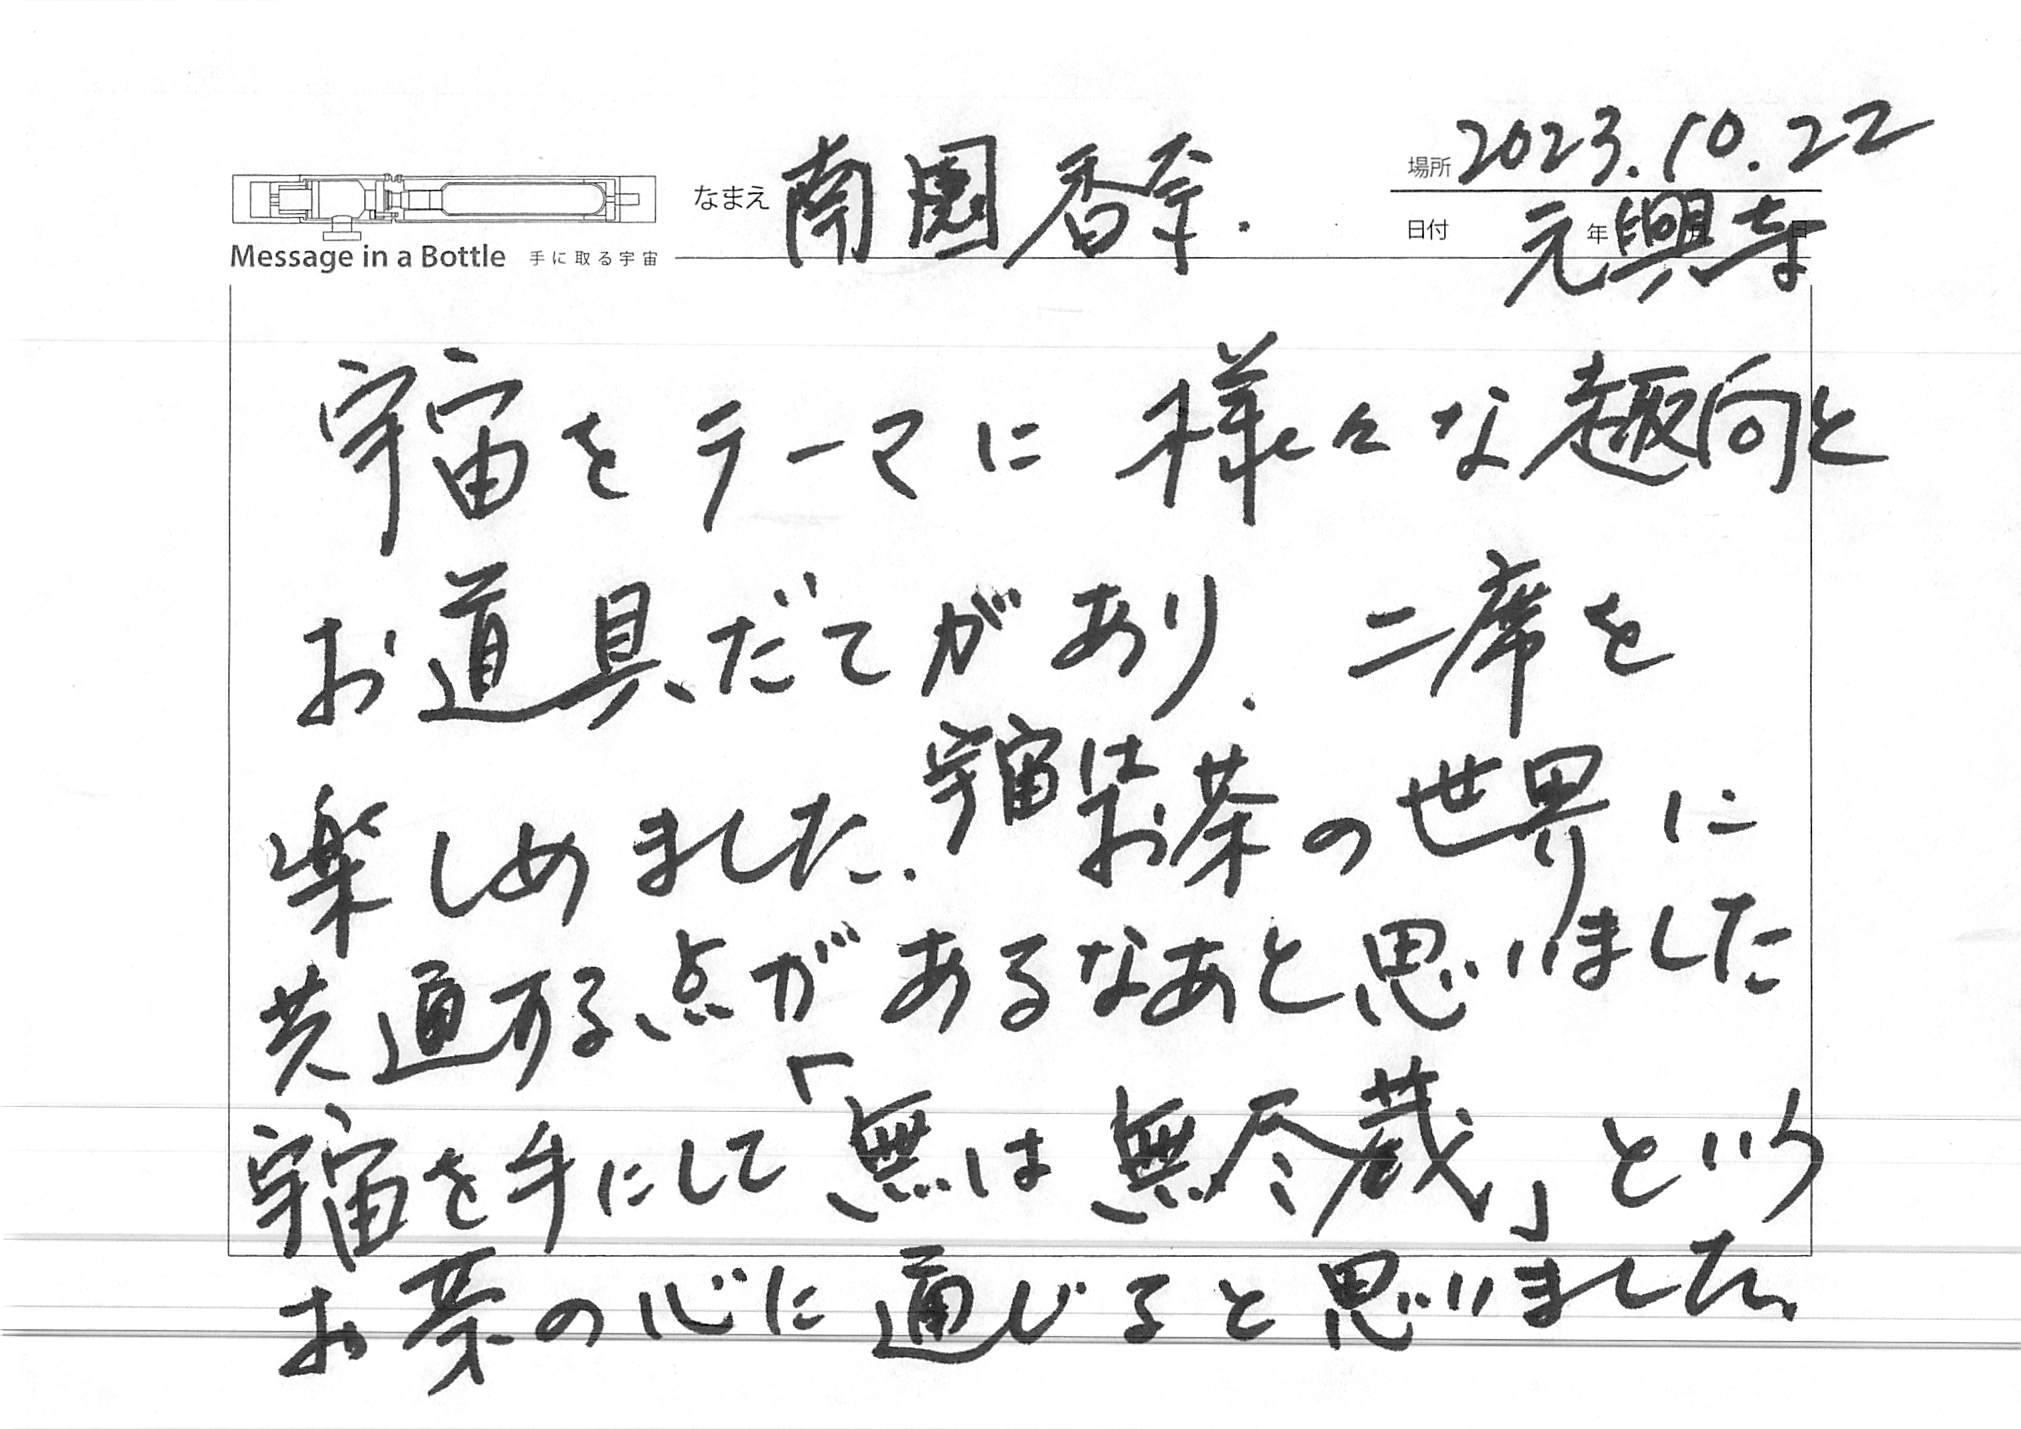 なまえ 南園香奈.
場所 2023.10.22
日付 年 月 日 元興寺
Message in a Bottle 手に取る宇宙
宇宙をテーマに様々な趣向と
お道具だてがあり. 二席を
楽しめました. 宇宙はお茶の世界に
共通する点があるなあと思いました
宇宙を手にして「無は無尽蔵」という
お茶の心に通じると思いました